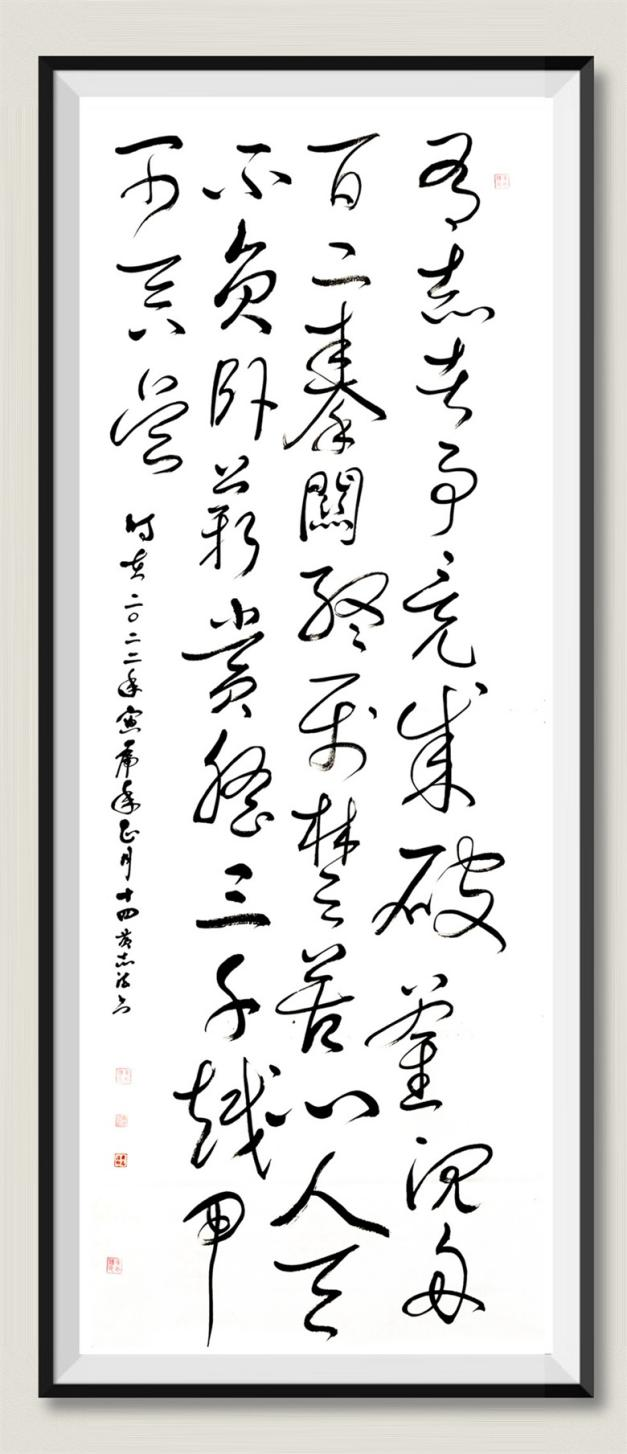 有志者事竟成破釜沉舟
百二秦關終属楚苦心人天
不負卧薪嘗膽三千越甲
可吞吴
时在二〇二二年寅虎年正月十四黄志